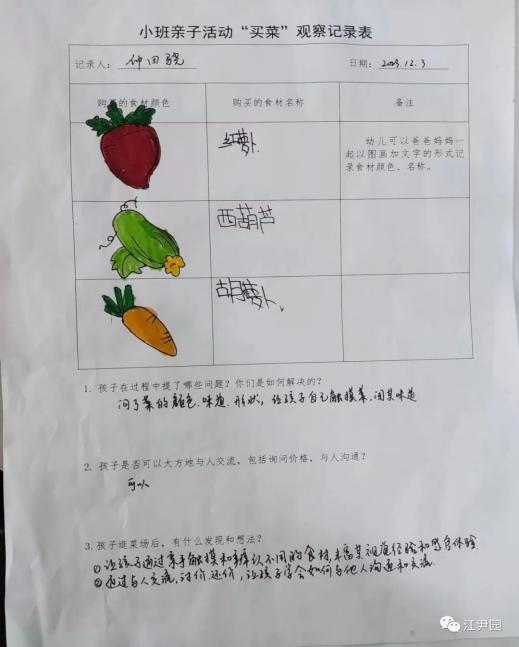 小班亲子活动“买菜”观察记录表
记录人： 仲田骁 日期：2023.12.3
购买的食材颜色 购买的食材名称 备注
红萝卜
幼儿可以爸爸妈妈一
起以图画加文字的形式记
录食材颜色、名称。
西葫芦
胡萝卜
1. 孩子在过程中提了哪些问题？你们是如何解决的？
问了菜的颜色.味道.形状，让孩子自己触摸菜，闻其味道
2. 孩子是否可以大方地与人交流，包括询问价格，与人沟通？
可以
3. 孩子逛菜场后，有什么发现和想法？
①让孩子通过亲手触摸和辨认不同的食材，丰富其视觉经验和感官体验.
②通过与人交流，讨价还价，让孩子学会如何与他人沟通和交流.
江尹园